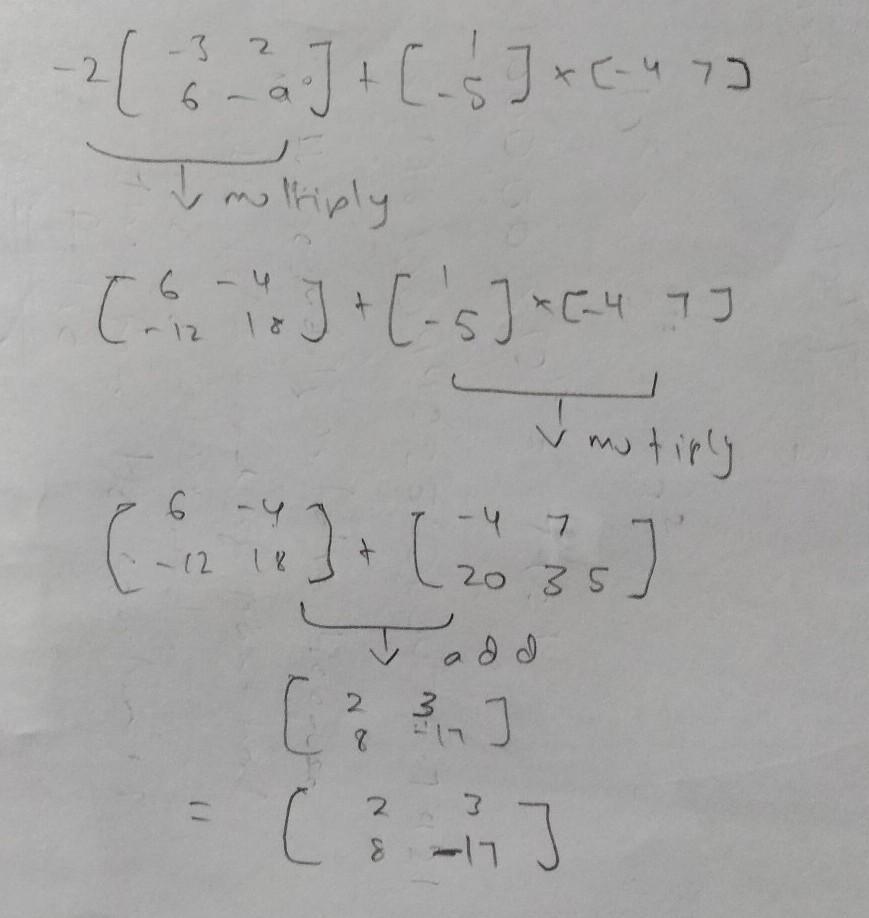 -2[ -3 2
6 -9 ] + [ 1
-5 ] × [-4 7]
↓ multiply
[ 6 -4
-12 18 ] + [ 1
-5 ] × [-4 7]
↓ mutiply
[ 6 -4
-12 18 ] + [ -4 7
20 35 ]
↓ add
[ 2 3
8 -17 ]
= [ 2 3
8 -17 ]